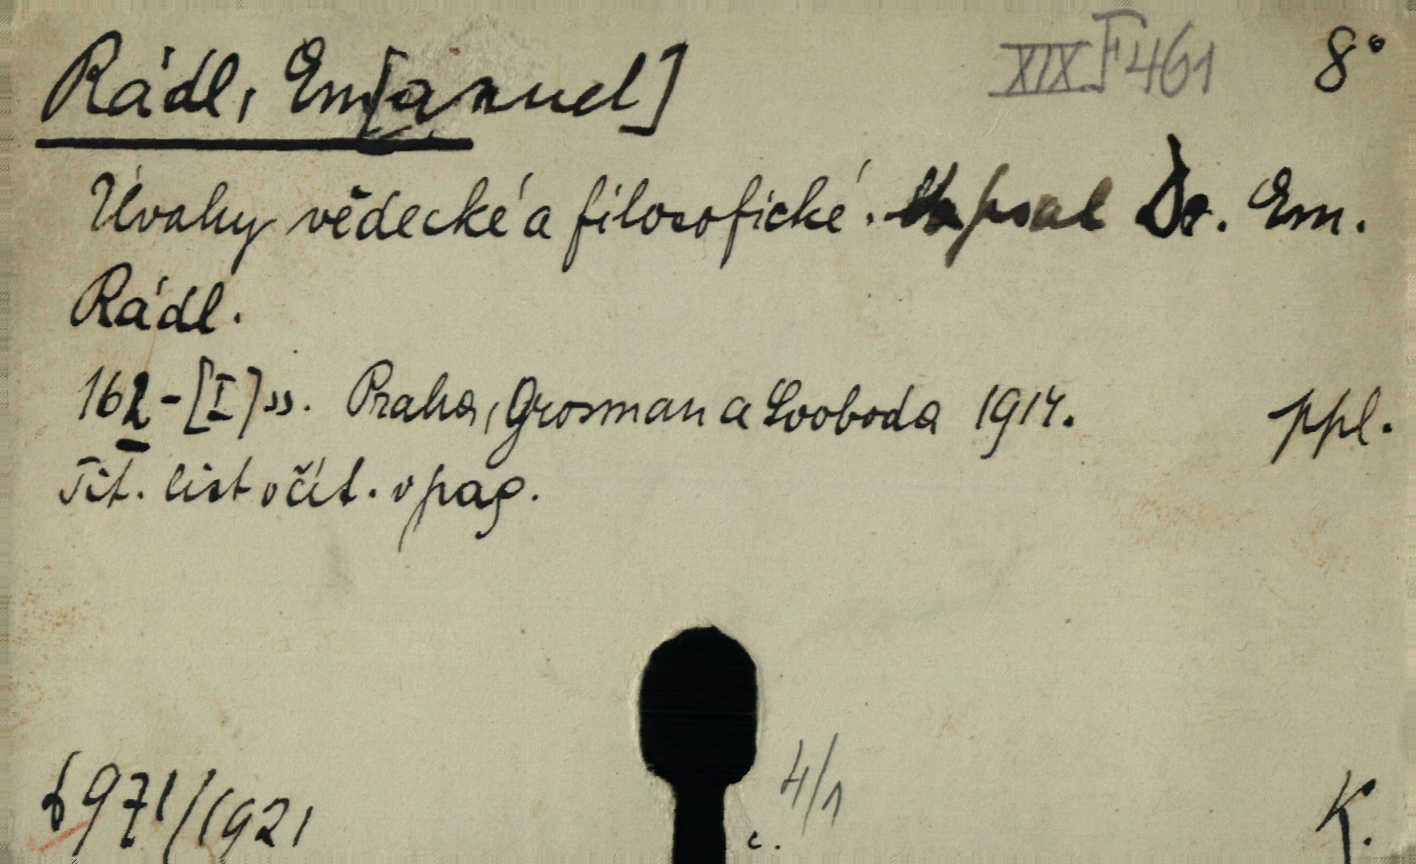 Rádl, Em[anuel] XIX F 461 8°
Úvahy vědecké a filosofické. Napsal Dr. Em.
Rádl.
162-[I] ss. Praha, Grosman a Svoboda 1914. ppl.
Tit. list včít. v pag.
971/1921 4/1 K.
c.